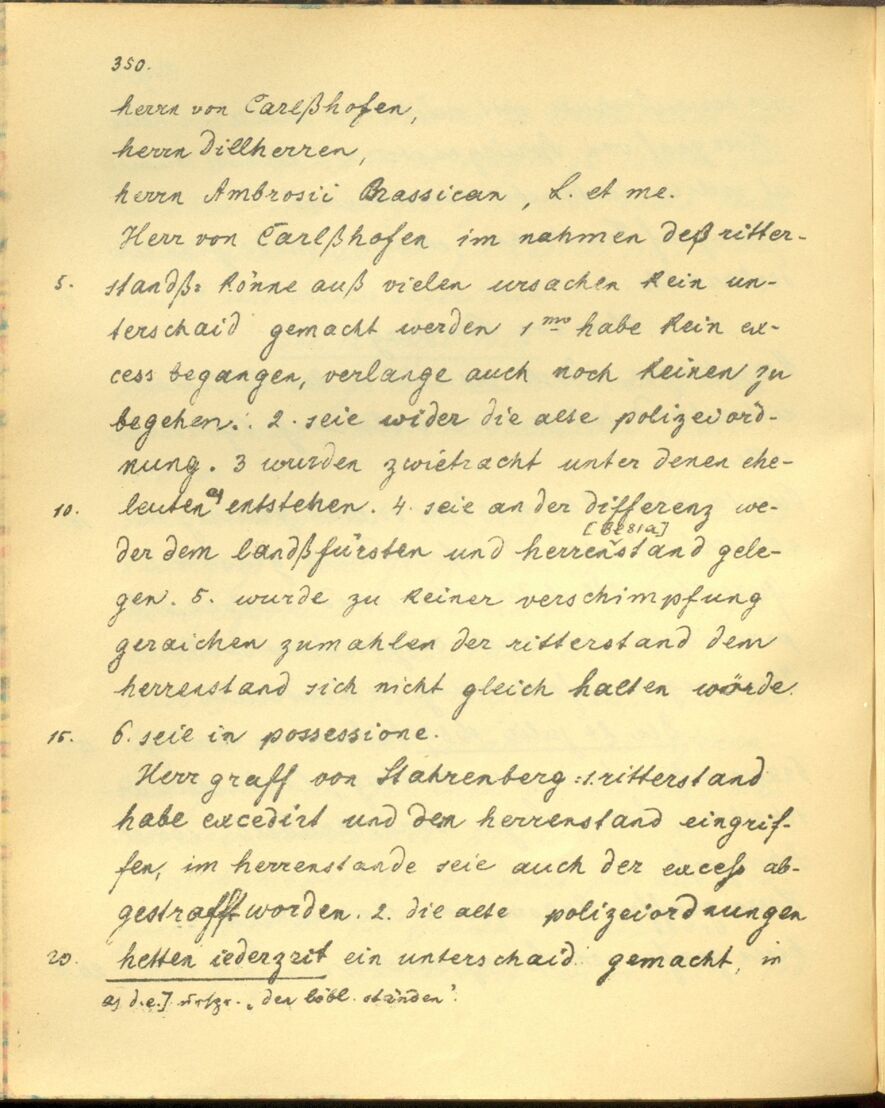 350.
herrn von Carlßhofen,
herrn Dillherren,
herrn Ambrosii Brassican, L. et me.
Herr von Carlßhofen im nahmen deß ritter-
5. standß: könne auß vielen ursachen kein un-
terschaid gemacht werden 1mo habe kein ex-
cess begangen, verlange auch noch keinen zu
begehen. 2. seie wider die alte polizeiord-
nung. 3 wurden zwietracht unter denen ehe-
10. leuten a) entstehen. 4. seie an der differenz we-
[Bl 81a]
der dem landßfürsten und herrenstand gele-
gen. 5. wurde zu keiner verschimpfung
geraichen zumahlen der ritterstand dem
herrenstand sich nicht gleich halten wörde.
15. 6. seie in possessione.
Herr graff von Stahrenberg: 1. ritterstand
habe excedirt und dem herrenstand eingrif-
fen, im herrenstande seie auch der excess ab-
gestrafft worden. 2. die alte polizeiordnungen
20. hetten iederzeit ein unterschaid gemacht, in
a) d.e.] „den löbl. ständen".